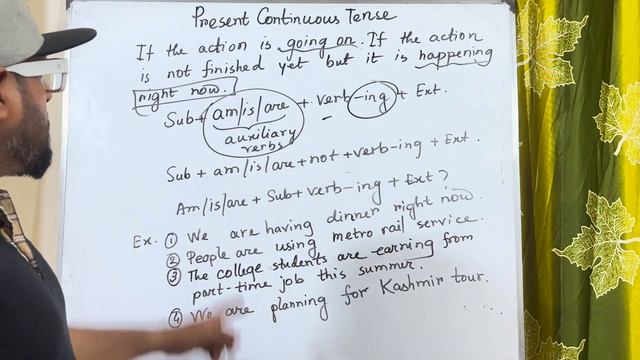 Present Continuous Tense
If the action is going on. If the action
is not finished yet but it is happening
right now.
Sub + am/is/are + verb-ing + Ext.
auxiliary
verbs
Sub + am/is/are + not + verb-ing + Ext.
Am/is/are + Sub + verb-ing + Ext?
Ex. ① We are having dinner right now.
② People are using metro rail service.
③ The college students are earning from
part-time job this summer.
④ We are planning for Kashmir tour.